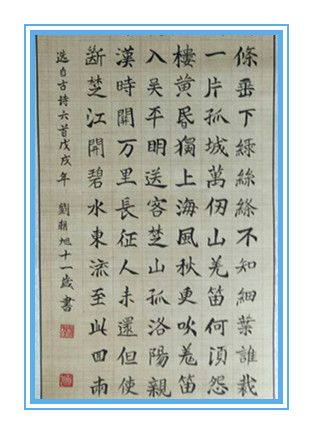 條垂下綠絲縧不知細葉誰裁
一片孤城萬仞山羌笛何須怨
樓黄昏獨上海風秋更吹羌笛
入吳平明送客芝山孤洛陽親
漢時關万里長征人未還但使
斷芝江開碧水東流至此回兩
选自古詩六首戊戌年 劉朝旭十一歲書